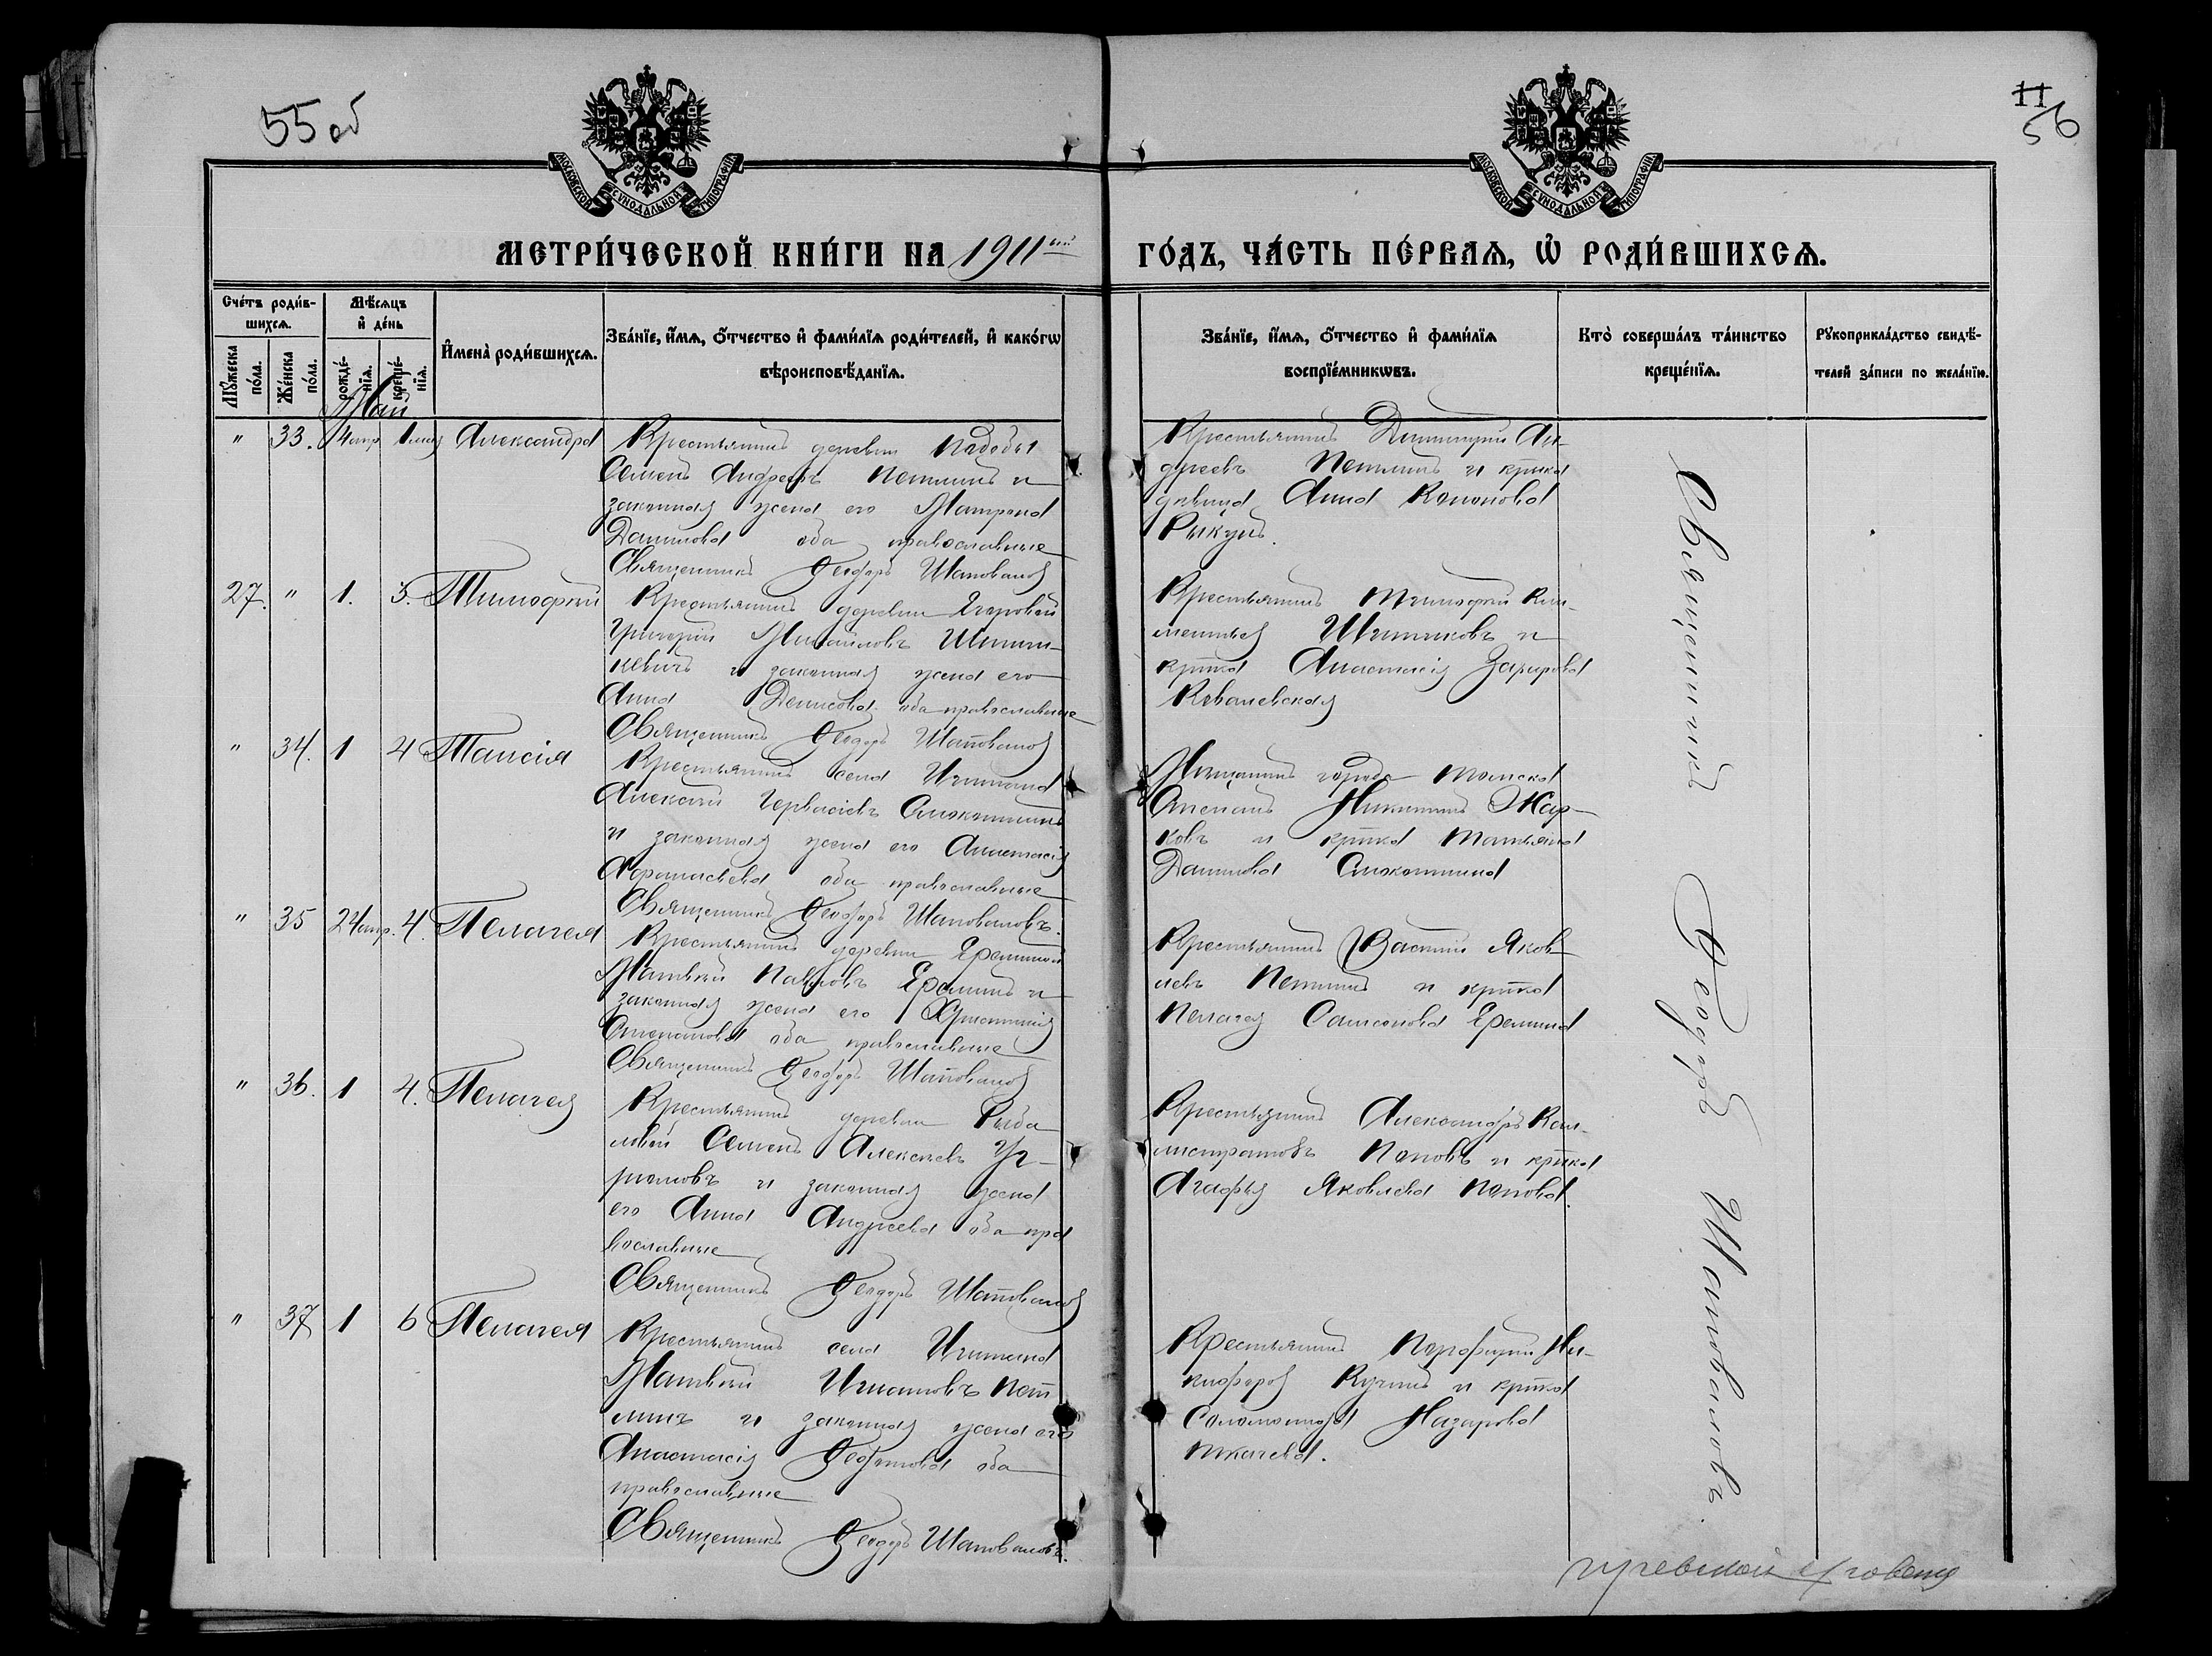 55 об
11
56
МОСКОВСКОЙ СУНОДАЛЬНОЙ ТИПОГРАФІИ
МОСКОВСКОЙ СУНОДАЛЬНОЙ ТИПОГРАФІИ
МЕТРИ́ЧЕСКОЙ КНИ́ГИ НА 1911ый ГО́ДЪ, ЧА́СТЬ ПЕ́РВАѦ, Ѽ РОДИ́ВШИХСѦ.
Сче́тъ роди́в-
шихсѧ.
Мѣ́сѧцъ
и҆ де́нь
Мꙋ́жеска
по́ла.
Же́нска
по́ла.
рожде́-
нїѧ.
креще́-
нїѧ.
И҆мена̀ роди́вшихсѧ.
Зва́нїе, и҆́мѧ, ѻ҆́тчество и҆ фами́лїѧ роди́телей, и҆ како́гѡ
вѣроисповѣ́данїѧ.
Зва́нїе, и҆́мѧ, ѻ҆́тчество и҆ фами́лїѧ
воспрїе́мникѡвъ.
Кто̀ соверша́лъ та́инство
креще́нїѧ.
Рꙋкоприкла́дство свидѣ́-
телей за́писи по жела́нїю.
Май
" 33. апр 1 мая Александра
Крестьянинъ деревни
Семенъ Андреевъ Петлинъ и
законная жена его Матрона
Данилова оба православные
Священникъ Феодоръ Шаповаловъ
Крестьянинъ Димитрий Ан-
дреевъ Петлинъ и крткa
девица Анна Кононова
Рыкунъ.
27. " 1. 3. Тимофей
Крестьянинъ деревни Егоровой
Григорий Михайловъ
и законная жена его
Анна Денисова оба православные
Священникъ Феодоръ Шаповаловъ
Крестьянинъ Тимофей Кли-
ментьев и
крткa Анастасія
Ковалевская
" 34. 1 4 Таисія
Крестьянинъ села
Алексей Гервасіевъ Слокотинъ
и законная жена его Анастасія
Афанасьева оба православные
Священникъ Феодоръ Шаповаловъ.
Мещанинъ города Томска
Степанъ Никитинъ Жар-
ковъ и крткa Татьяна
Данилова
" 35 24 апр. 4. Пелагея
Крестьянинъ деревни Ереминой
Матвей Павловъ Ереминъ и
законная жена его Христинія
Степанова оба православные
Священникъ Феодоръ Шаповаловъ
Крестьянинъ Василий Яков-
левъ Петлинъ и крткa
Пелагея Самсонова Еремина
" 36. 1 4. Пелагея
Крестьянинъ деревни Рыба-
ловой Семенъ Алексеевъ Уг-
рюмовъ и законная жена
его Анна Андреева оба пра
вославные
Священникъ Феодоръ Шаповаловъ
Крестьянинъ Александръ Кал-
листратовъ Поповъ и крткa
Агафья Яковлева Попова.
" 37 1 6 Пелагея
Крестьянинъ села
Матвей Игнатовъ Пет
линъ и законная жена его
Анастасія оба
православные
Священникъ Феодоръ Шаповаловъ.
Крестьянинъ Порфирий Ни-
кифоров Кучинъ и крткa
Соломонида Назарова
Ткачева.
Священникъ Феодоръ Шаповаловъ.